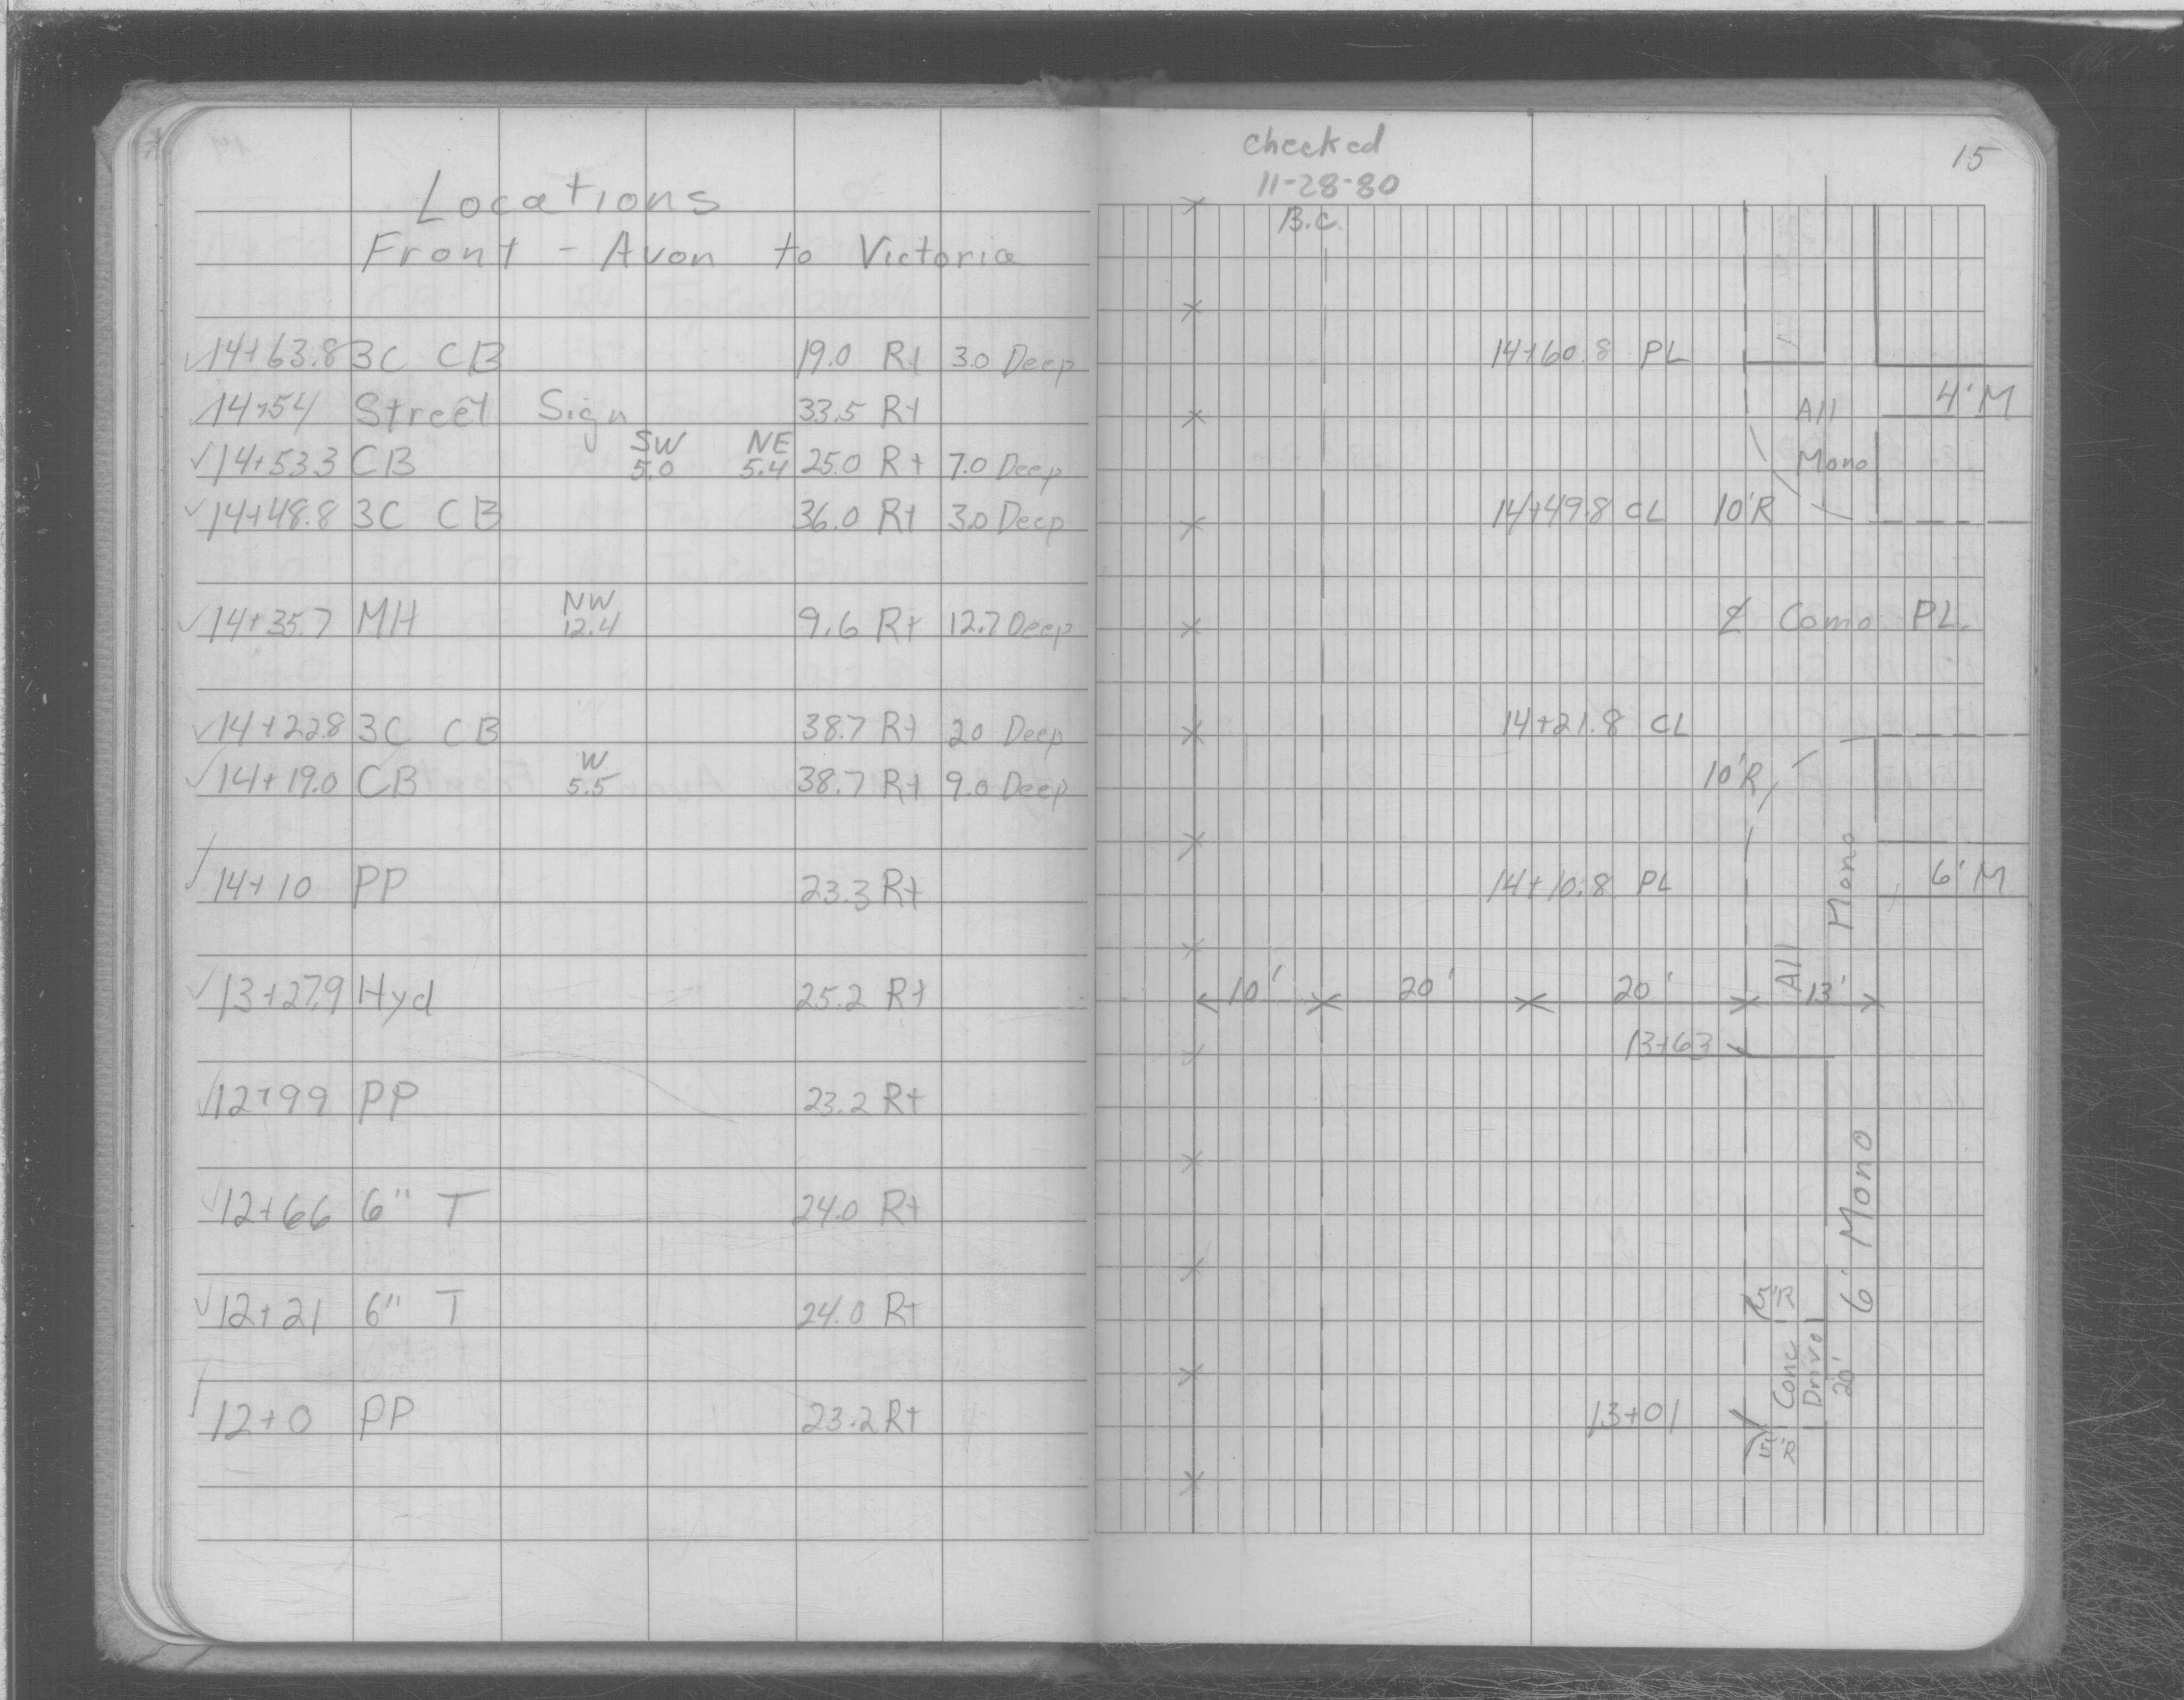 Locations
Front - Avon to Victoria
14+63.8 3C CB 19.0 Rt 3.0 Deep
14+54 Street Sign 33.5 Rt
SW NE
14+53.3 CB 5.0 5.4 25.0 Rt 7.0 Deep
14+48.8 3C CB 36.0 Rt 3.0 Deep
NW
14+35.7 MH 12.4 9.6 Rt 12.7 Deep
14+22.8 3C CB 38.7 Rt 2.0 Deep
W
14+19.0 CB 5.5 38.7 Rt 9.0 Deep
14+10 PP 23.3 Rt
13+27.9 Hyd 25.2 Rt
12+99 PP 23.2 Rt
12+66 6" T 24.0 Rt
12+21 6" T 24.0 Rt
12+0 PP 23.2 Rt
checked
11-28-80
B.C.
15
14+60.8 PL
4' M
All
Mono
14+49.8 CL 10'R
℄ Como PL.
14+21.8 CL
10'R
6' M
14+10.8 PL
All Mono
10' 20' 20' 13'
13+63
6' Mono
5'R
Conc
Drive
20'
13+01
5'R